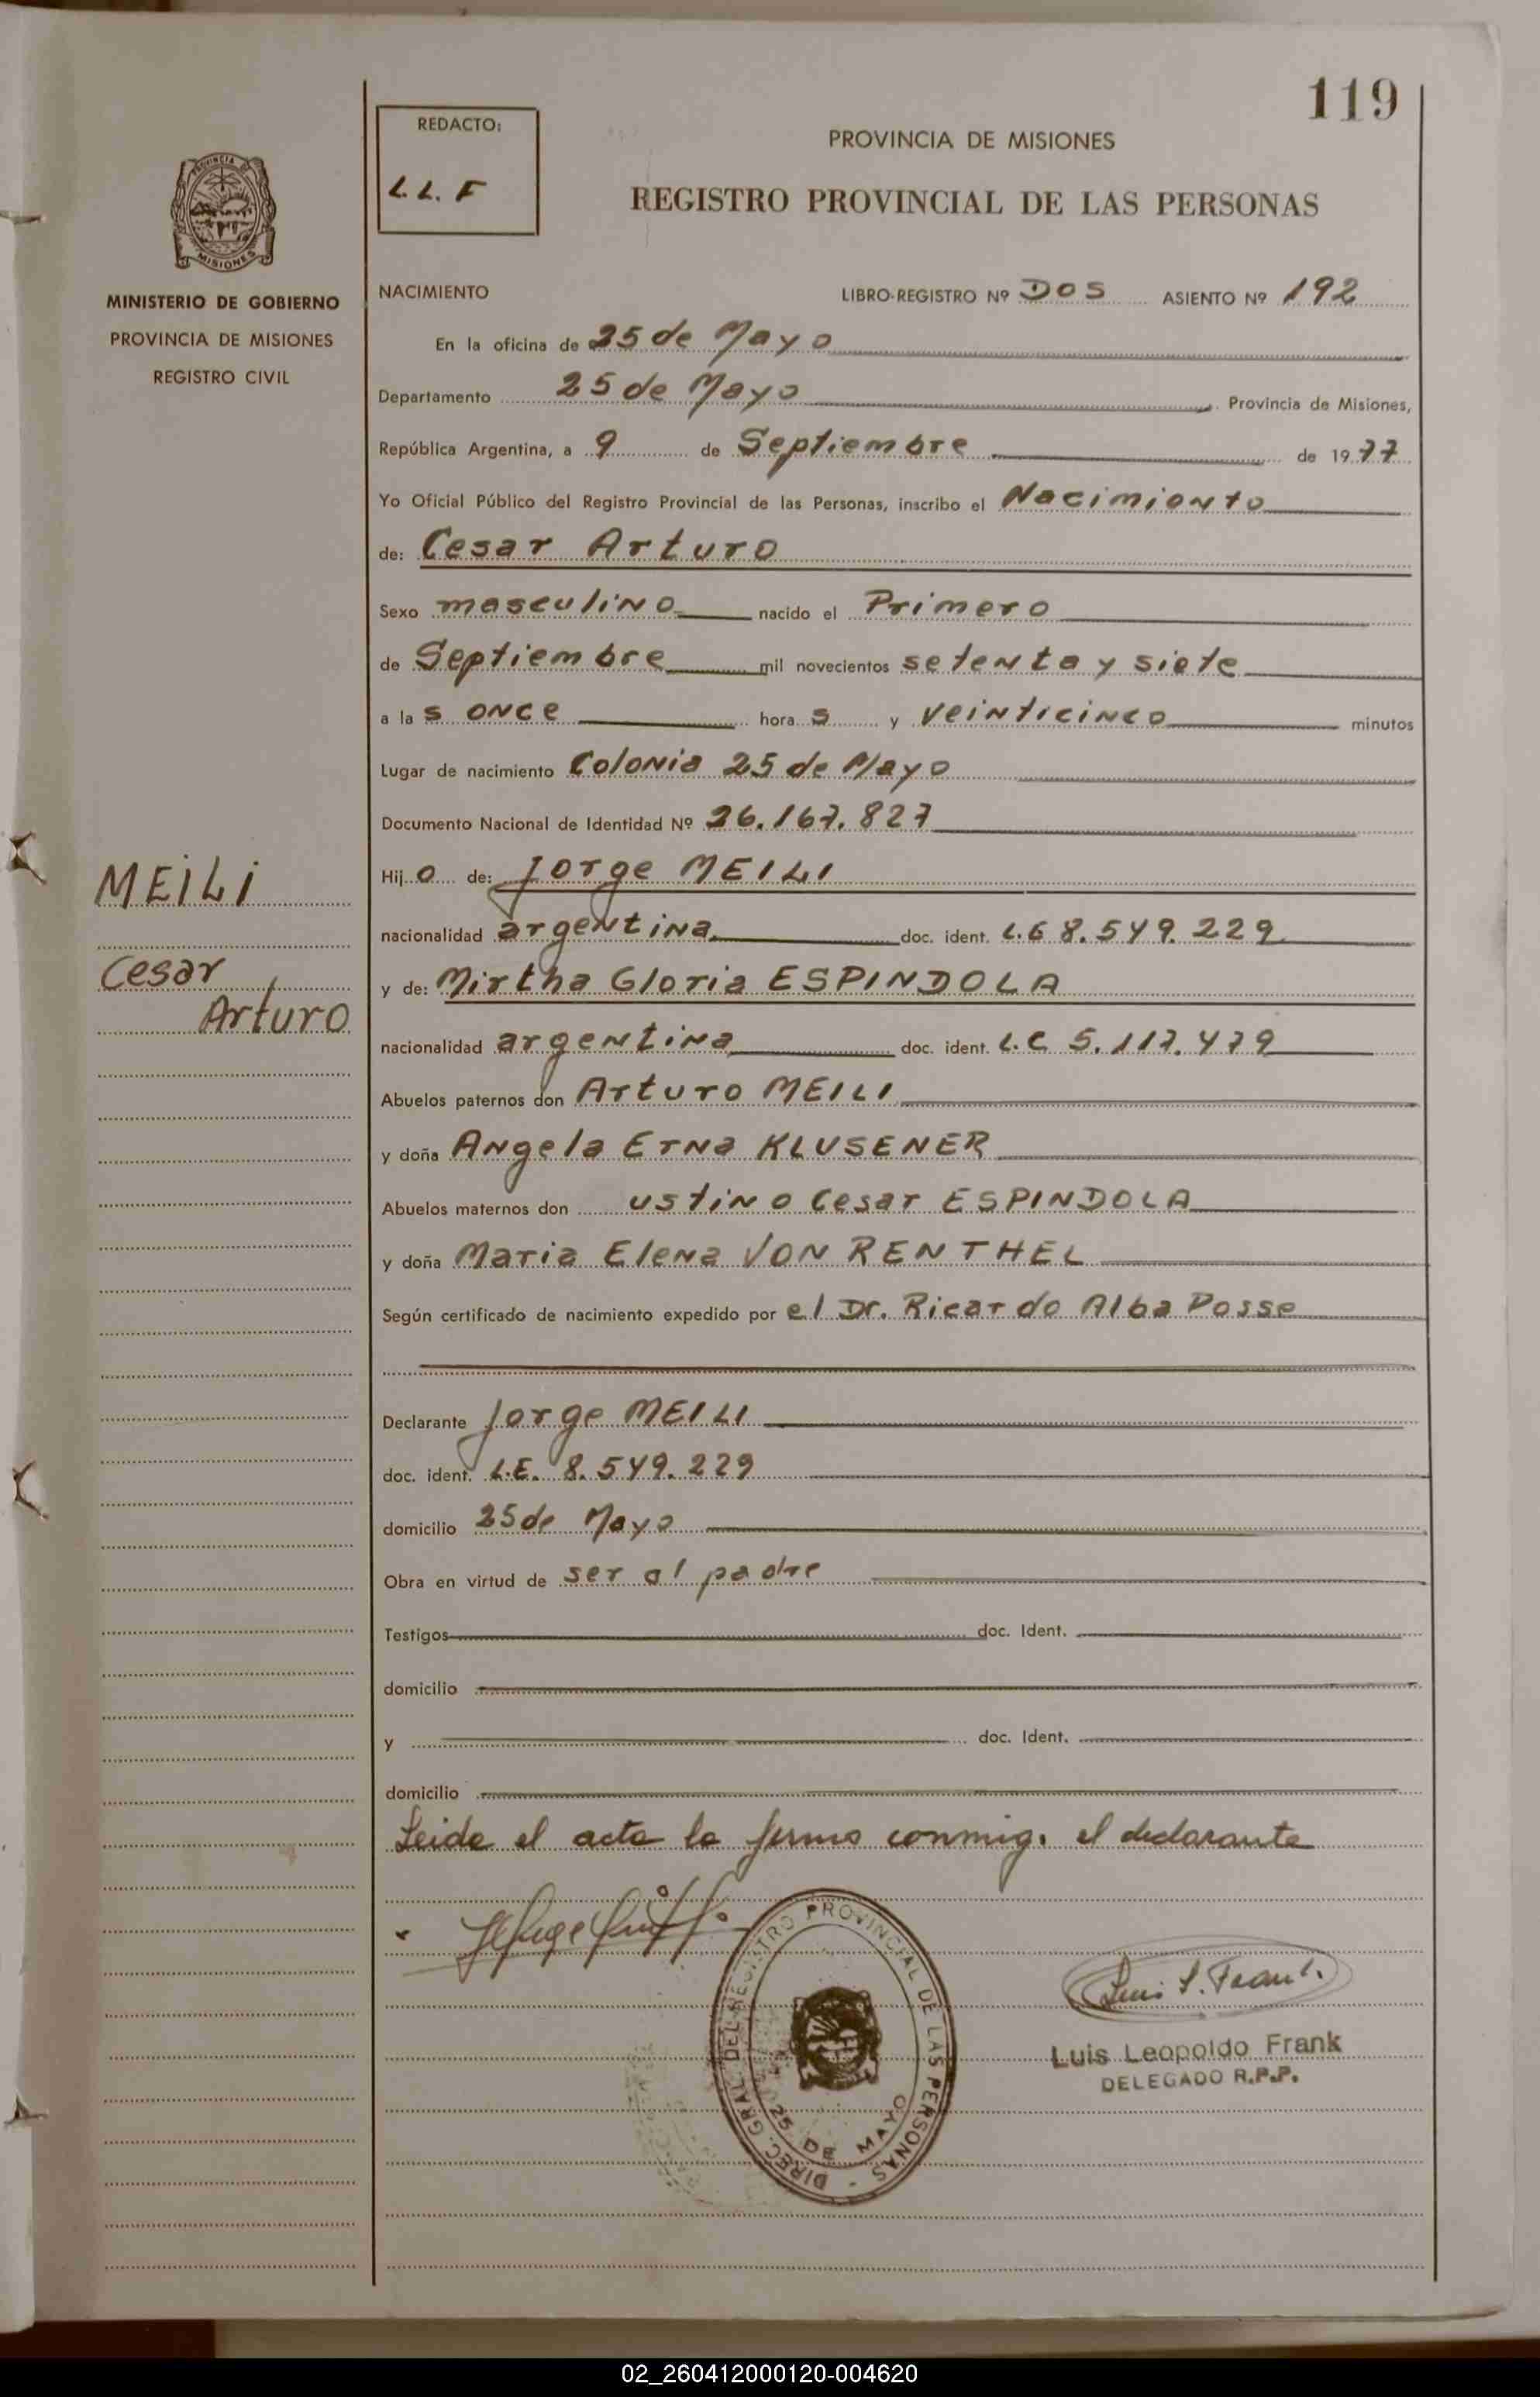 119
REDACTO:
L.L.F
PROVINCIA DE MISIONES
REGISTRO PROVINCIAL DE LAS PERSONAS
PROVINCIA DE
MISIONES
MINISTERIO DE GOBIERNO
PROVINCIA DE MISIONES
REGISTRO CIVIL
NACIMIENTO LIBRO-REGISTRO Nº DOS ASIENTO Nº 192
En la oficina de 25 de Mayo
Departamento 25 de Mayo Provincia de Misiones,
República Argentina, a 9 de Septiembre de 1977
Yo Oficial Público del Registro Provincial de las Personas, inscribo el Nacimiento
de: Cesar Arturo
Sexo masculino nacido el Primero
de Septiembre mil novecientos setenta y siete
a las once horas y veinticinco minutos
Lugar de nacimiento Colonia 25 de Mayo
Documento Nacional de Identidad Nº 26.167.827
MEILI
Cesar
Arturo
Hijo de: Jorge MEILI
nacionalidad argentina doc. ident. L.E 8.549.229
y de: Mirtha Gloria ESPINDOLA
nacionalidad argentina doc. ident. L.C 5.117.479
Abuelos paternos don Arturo MEILI
y doña Angela Erna KLUSENER
Abuelos maternos don ustino Cesar ESPINDOLA
y doña Maria Elena VON RENTHEL
Según certificado de nacimiento expedido por el Dr. Ricardo Alba Posse
Declarante Jorge MEILI
doc. ident. L.E. 8.549.229
domicilio 25 de Mayo
Obra en virtud de ser al padre
Testigos doc. Ident.
domicilio
y doc. Ident.
domicilio
Leida el acta la firma conmigo el declarante
DIREC. GRAL. DEL REGISTRO PROVINCIAL DE LAS PERSONAS -
25 DE MAYO
Luis L. Frank
Luis Leopoldo Frank
DELEGADO R.P.P.
02_260412000120-004620